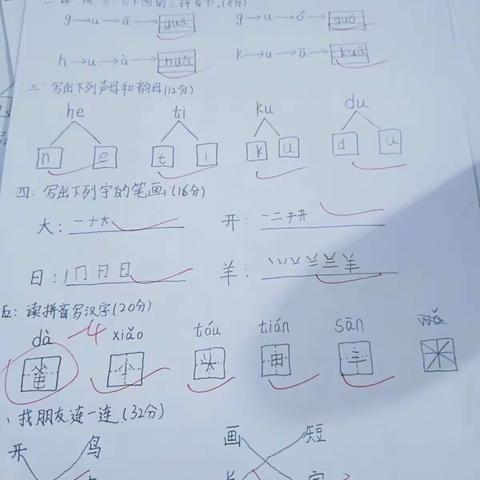 g→u→ā→guā g→u→ó→guó
h→u→à→huà k→u→ā→kuā
三、写出下列声母和韵母(12分)
he ti ku du
h e t i k u d u
四:写出下列字的笔画(16分)
大:一ナ大 开:一二于开
日:丨冂日日 羊:丶丷䒑兰兰羊
五:读拼音写汉字(20分)
-4
dà xiǎo tóu tián sān
小 头 田 三 米
、找朋友连一连(32分)
开 鸟 画 短